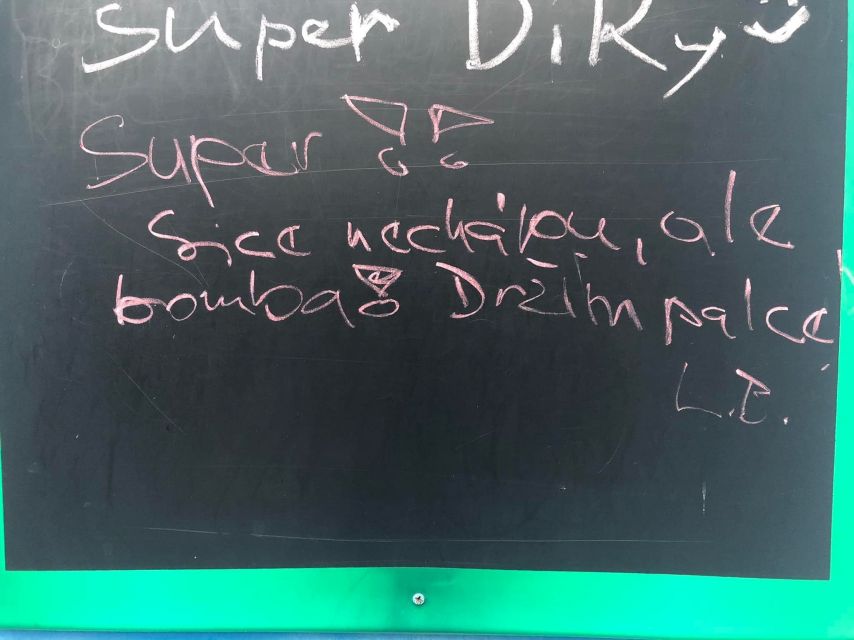 Super DiKy
Super !!
Sice nechápu, ale
bomba! Držím palce
L.B.